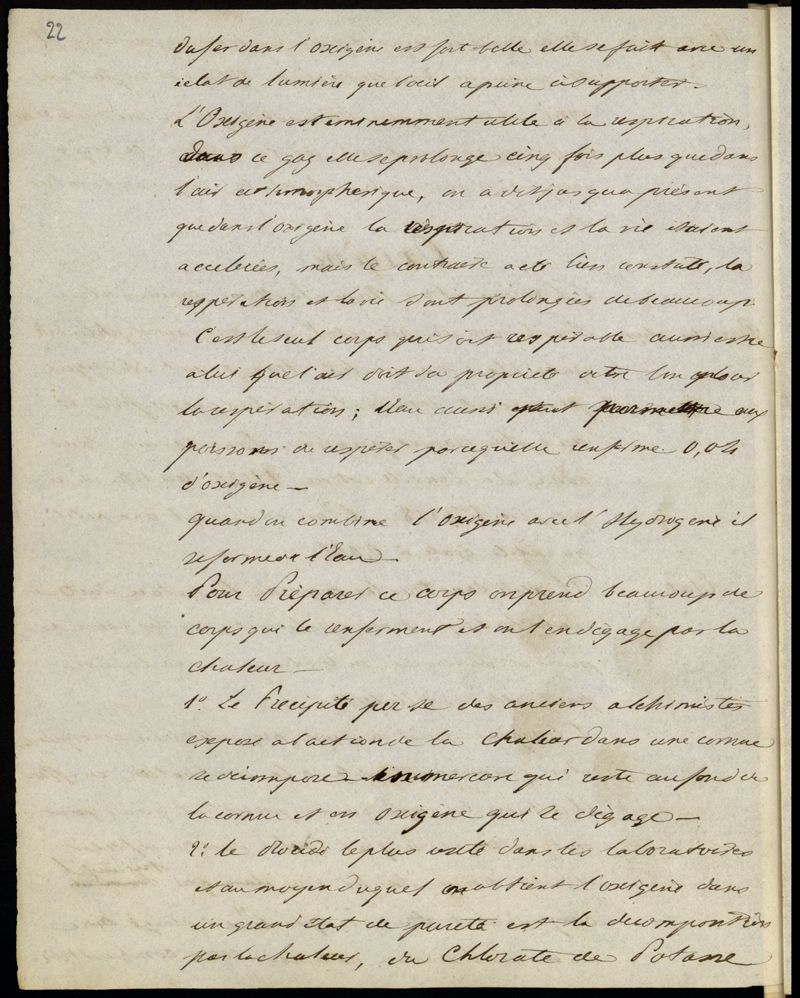 22
du fer dans l'Oxigène est fort belle elle se fait avec un
éclat de lumière que l'oeil a peine à supporter.
L'Oxigène est éminemment utile à la respiration,
dans ce gaz elle se prolonge cinq fois plus que dans
l'air atmospherique, on a dit jusqu'a présent
que dans l'oxigène la respiration et la vie étaient
accelerées, mais le contraire a été bien constaté, la
respiration et la vie sont prolongées de beaucoup
C'est le seul corps qui soit respirable aussi est ce
a lui que l'air doit sa proprieté
la respiration; l'eau aussi peut permettre aux
poissons de respirer parcequ'elle renferme 0,04
d'oxigène —
quand on combine l'oxigène avec l'Hydrogene il
se forme de l'Eau —
Pour Préparer ce corps on prend beaucoup de
corps qui le renferment et on l'en dégage par la
chaleur —
1º. Le Precipité per se des anciens alchimistes
exposé a l'action de la chaleur dans une cornue
se décompose en mercure qui reste au fond de
la cornue et en oxigène qui se dégage —
2º. le procédé le plus usité dans les laboratoires
et au moyen duquel on obtient l'oxigène dans
un grand état de pureté est la decomposition
par la chaleur, du Chlorate de Potasse